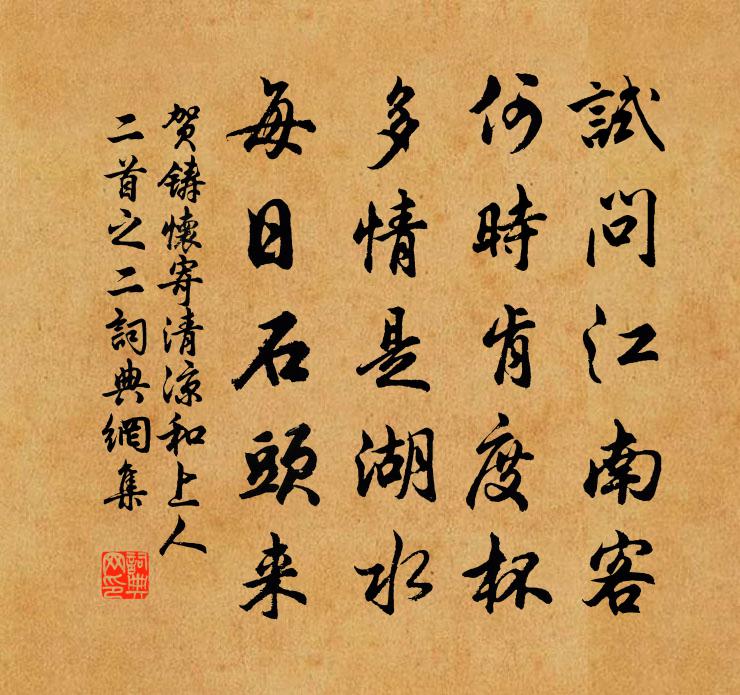 試問江南客
何時肯度杯
多情是湖水
每日石頭来
贺鑄懷寄清涼和上人
二首之二詞典網集
詞典网印